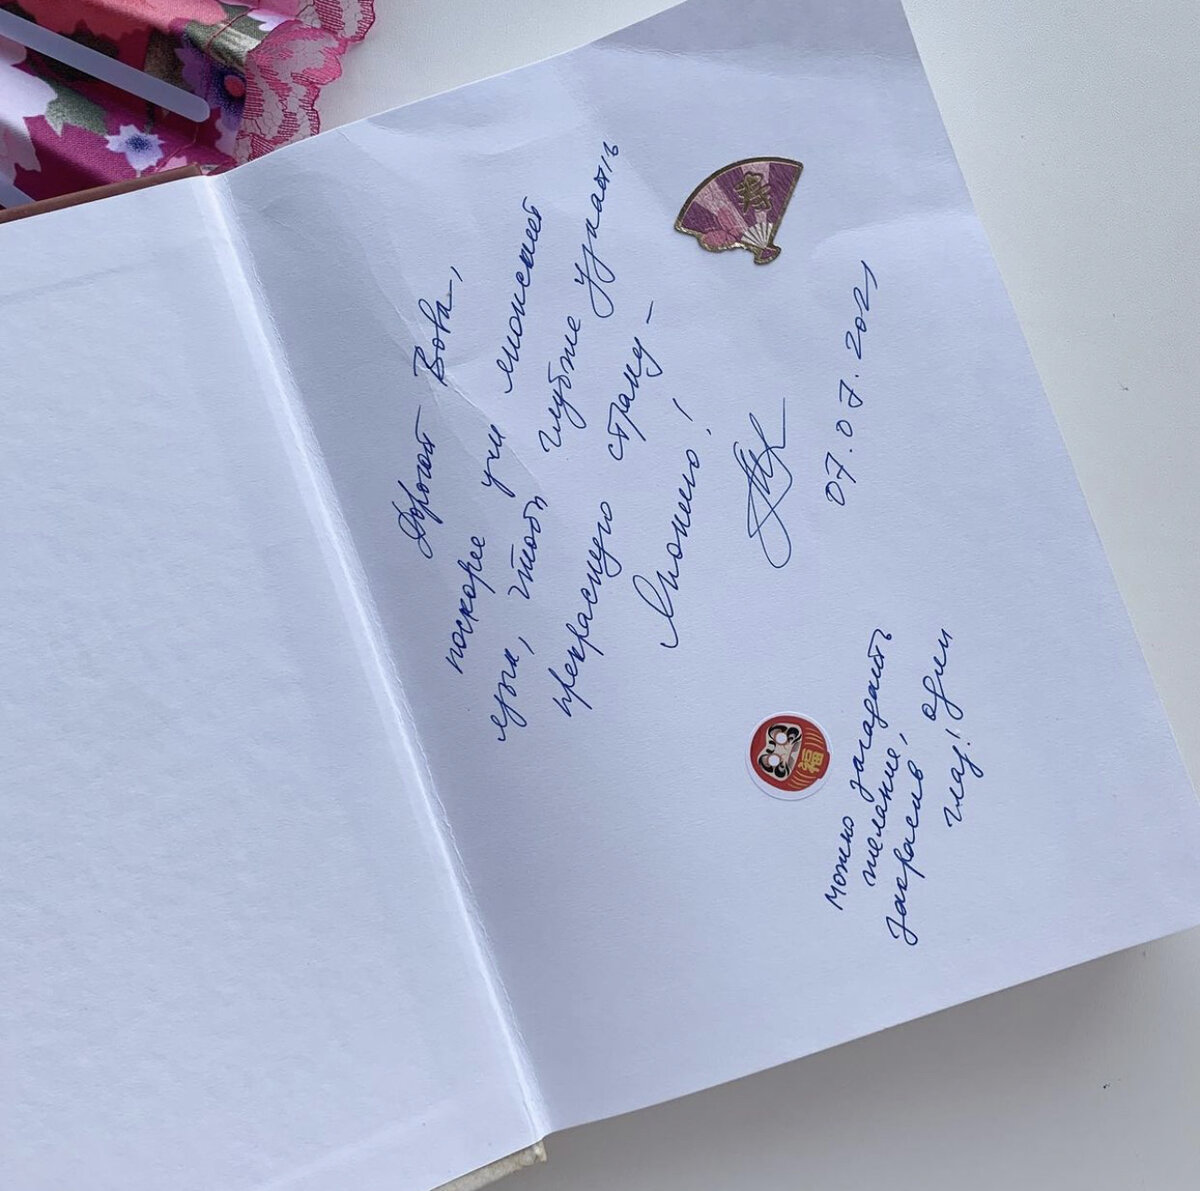 Дорогой Вова,
поскорее учи японский
язык, чтобы глубже узнать
прекрасную страну –
Японию!
07.07.2021
福
можно загадать
желание,
закрасив один
глаз!